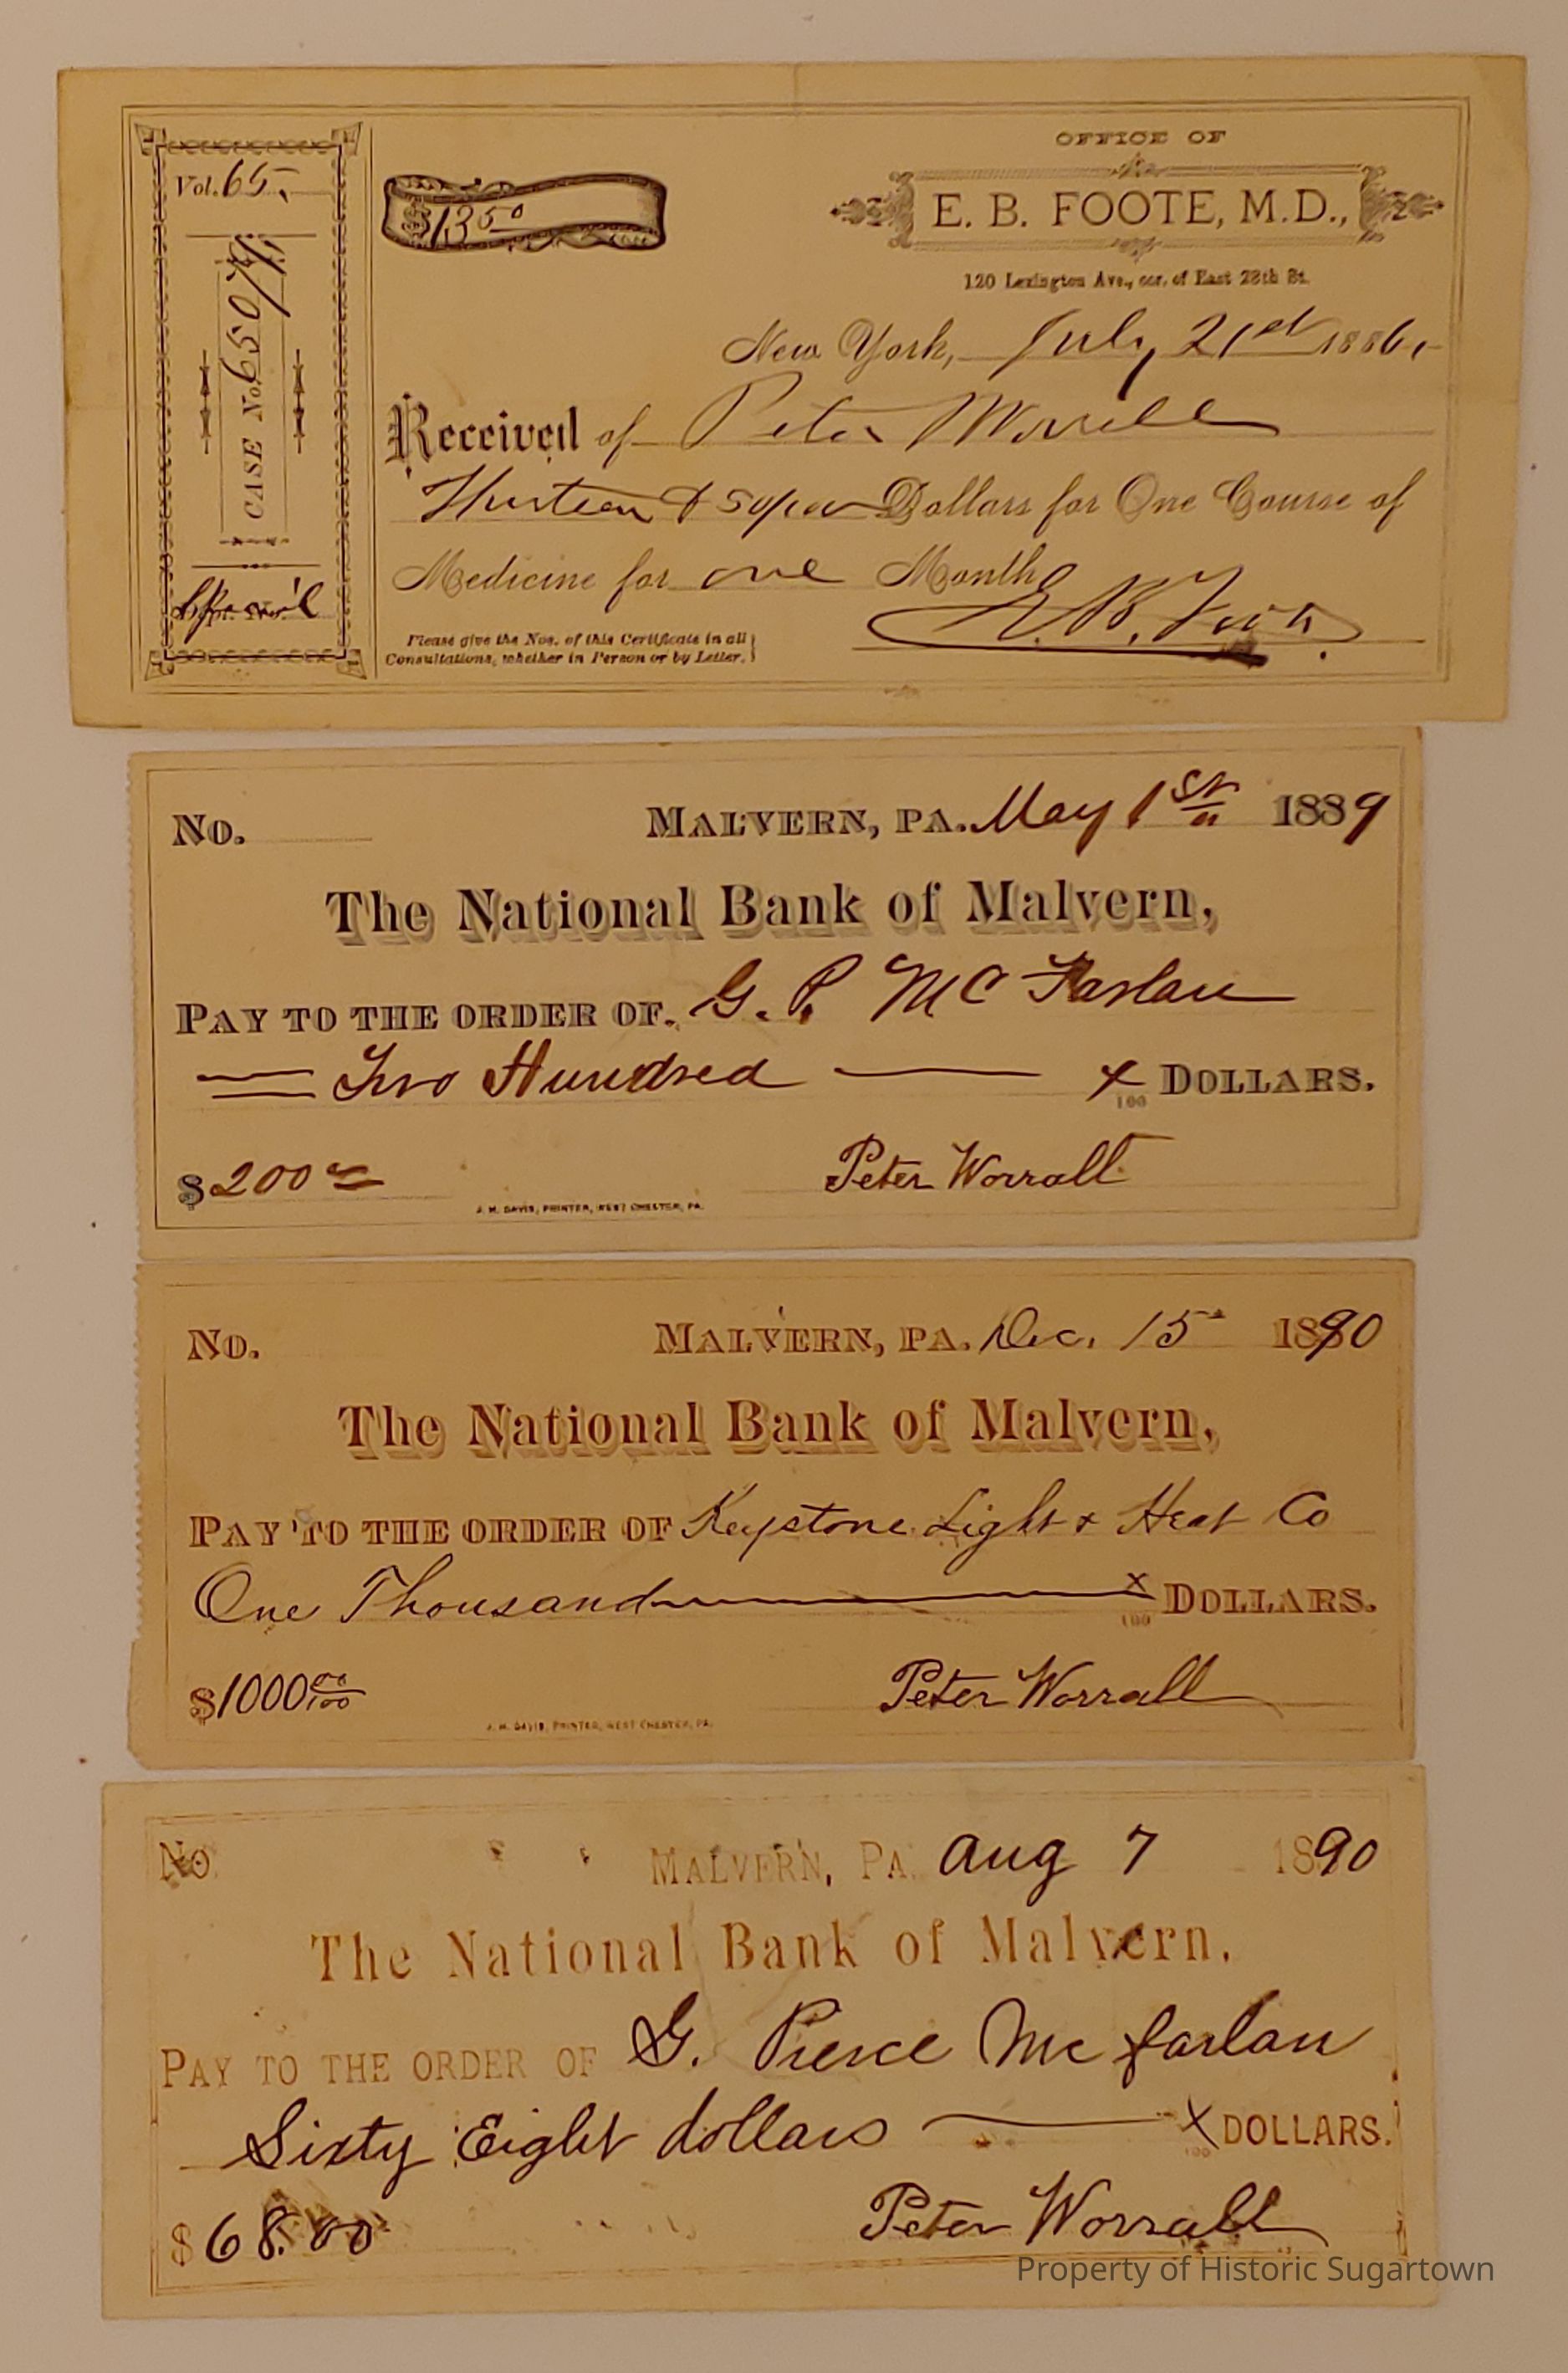 OFFICE OF
E. B. FOOTE, M.D.,
120 Lexington Ave., cor. of East 28th St.
Vol. 65.
CASE No.
$13 50
New York, July 21st 1886
Received of Peter Worrell
Thirteen & 50/100 Dollars for One Course of
Medicine for one Month
E. B. Foote
Please give the Nos. of this Certificate in all
Consultations, whether in Person or by Letter.
No. MALVERN, PA. May 1st 1889
The National Bank of Malvern,
PAY TO THE ORDER OF G. P. McFarlan
Two Hundred x/100 DOLLARS.
$200
Peter Worrall
J. H. DAVIS, PRINTER, WEST CHESTER, PA.
No. MALVERN, PA. Dec. 15 1890
The National Bank of Malvern,
PAY TO THE ORDER OF Keystone Light & Heat Co
One Thousand x/100 DOLLARS.
$1000 00/100
Peter Worrall
J. H. DAVIS, PRINTER, WEST CHESTER, PA.
No MALVERN, PA. Aug 7 1890
The National Bank of Malvern,
PAY TO THE ORDER OF G. Pierce McFarlan
Sixty Eight dollars x/100 DOLLARS.
$68.00
Peter Worrall
Property of Historic Sugartown